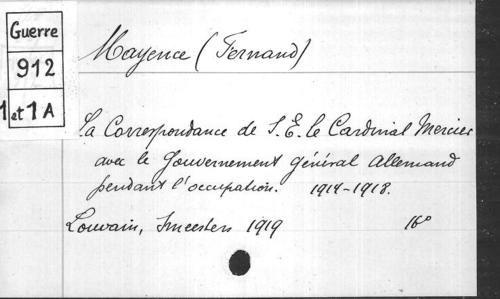 Guerre
912
1et1A
Mayence (Fernand)
La Correspondance de S.E. le Cardinal Mercier
avec le Gouvernement général Allemand
pendant l'occupation. 1914-1918.
Louvain, Smeesters 1919 16°